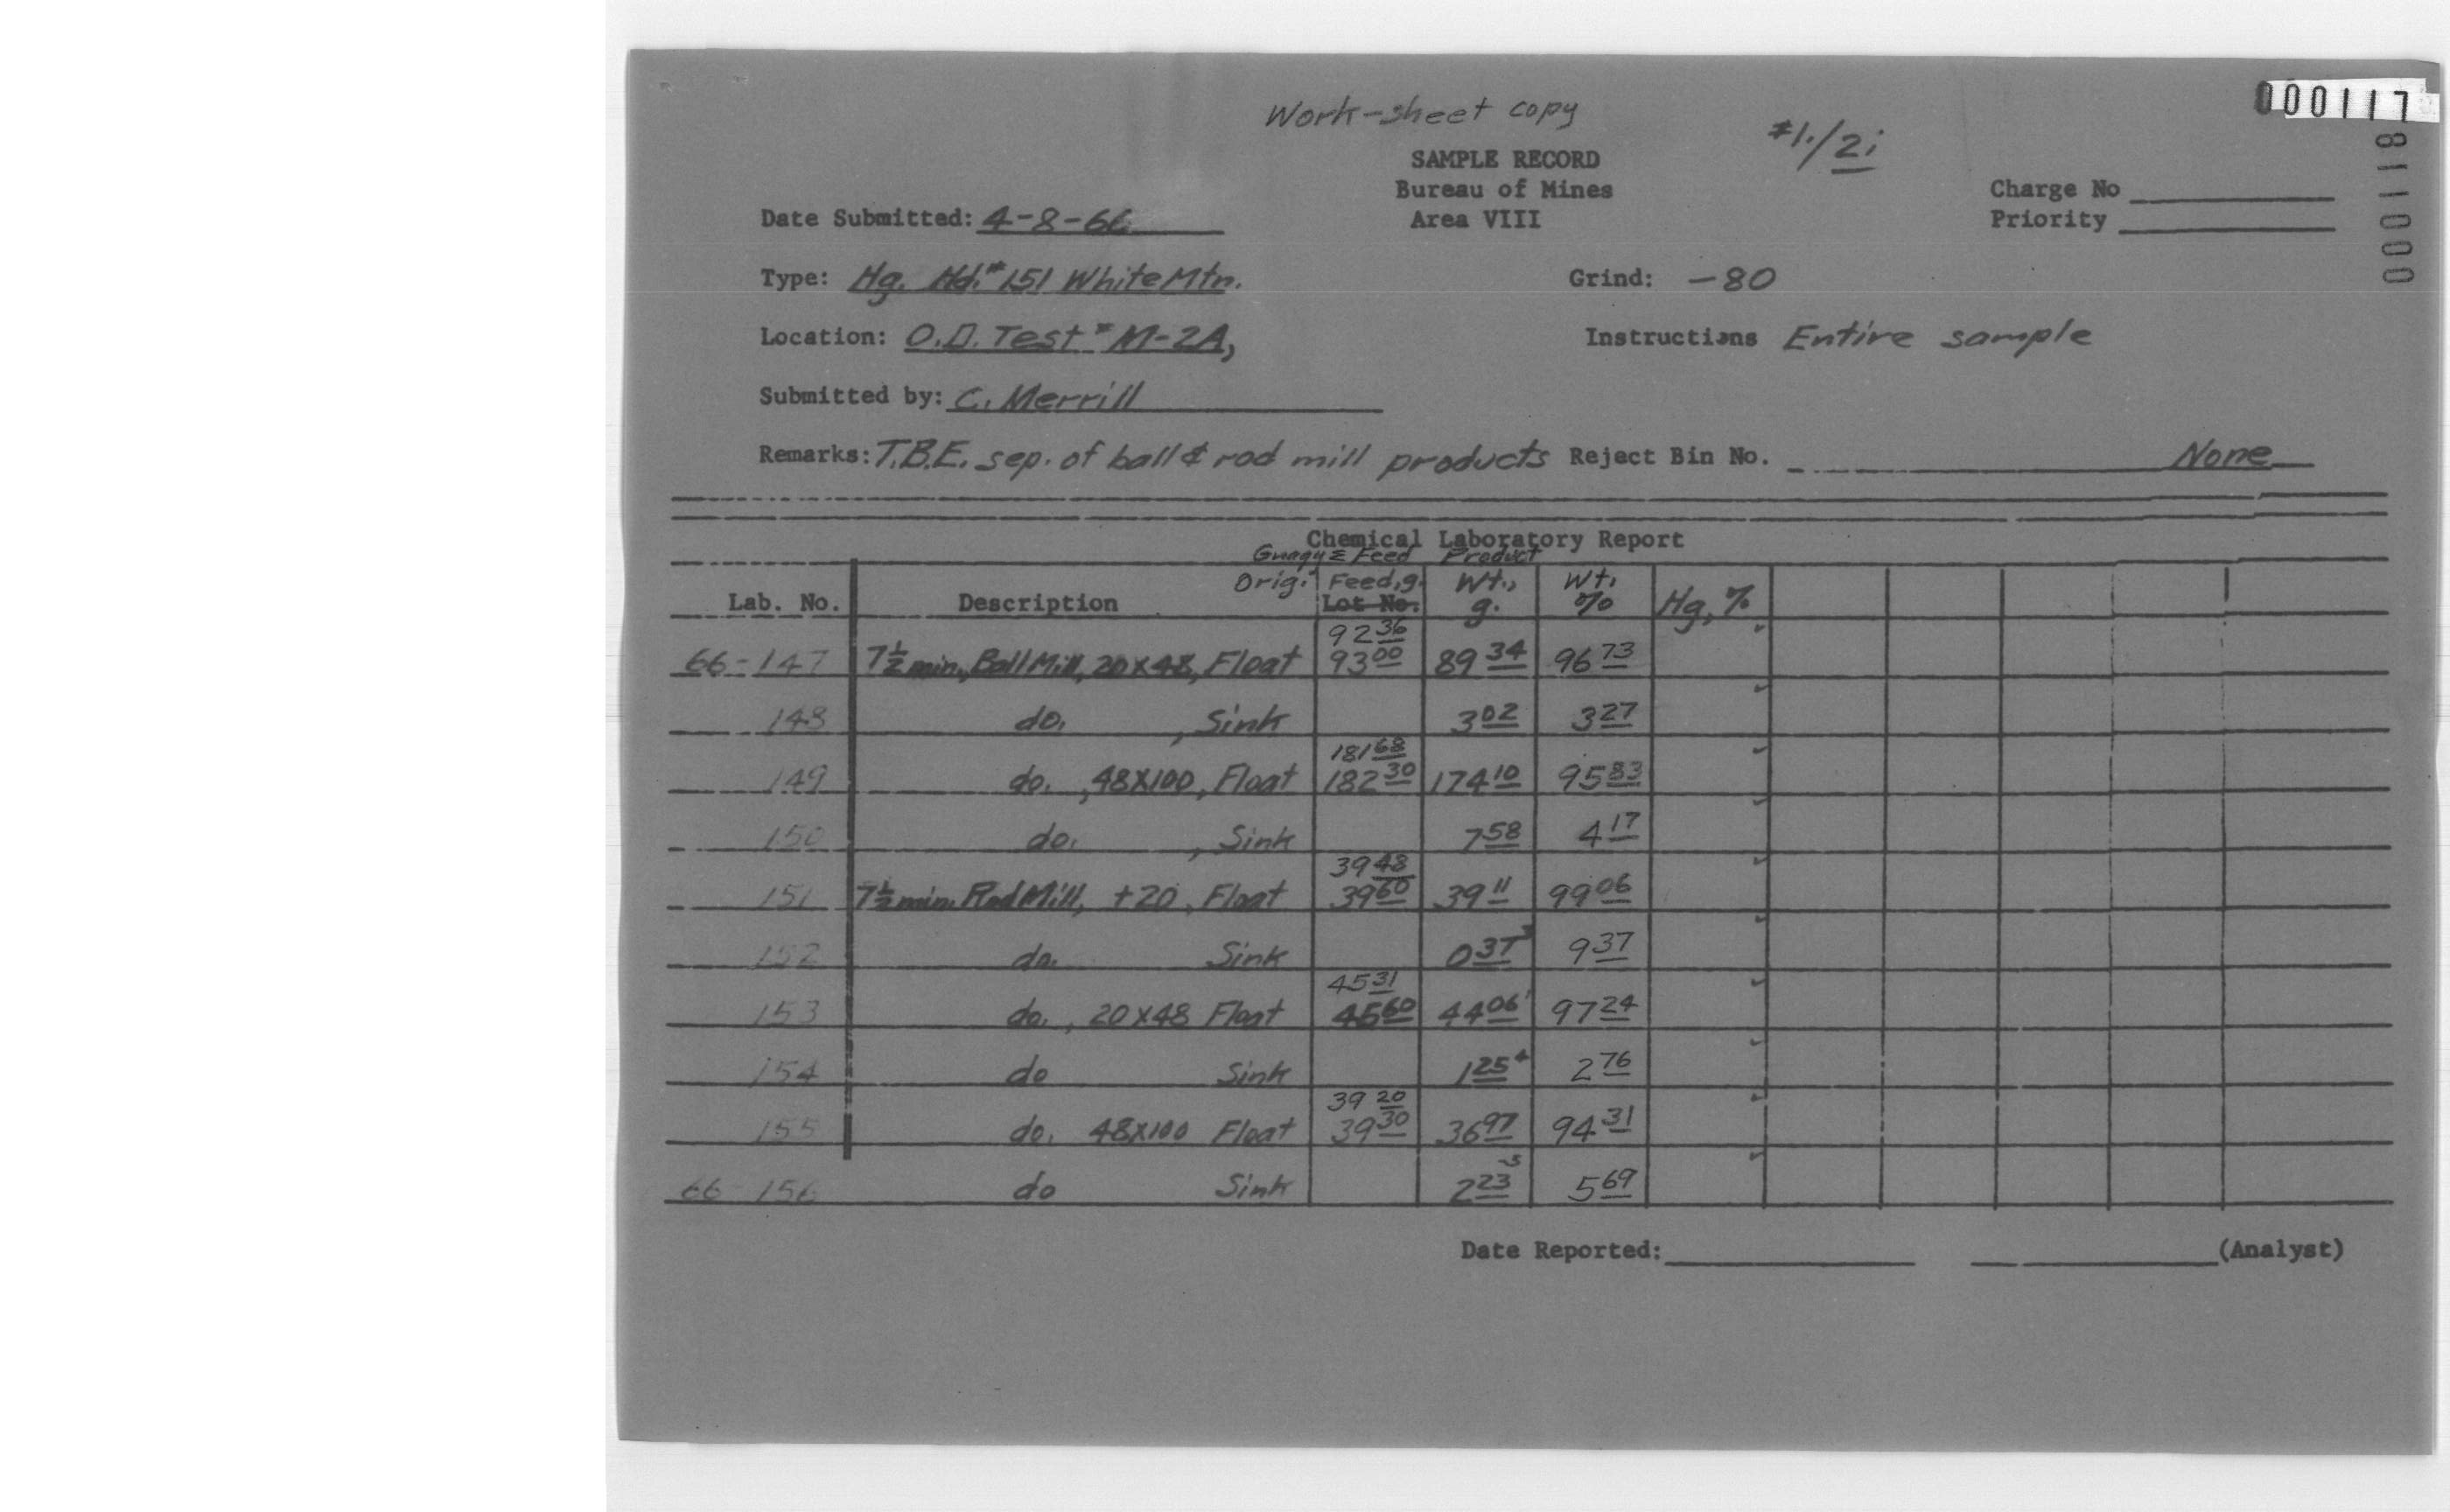 000117
811000
Work-sheet copy
#1./2i
SAMPLE RECORD
Bureau of Mines
Area VIII
Charge No
Priority
Date Submitted: 4-8-66
Type: Hg. Hd.# 151 White Mtn.
Grind: -80
Location: O.D. Test # M-2A,
Instructions Entire sample
Submitted by: C. Merrill
Remarks: T.B.E. sep. of ball & rod mill products Reject Bin No. None
Chemical Laboratory Report
Σ Feed Product
Lab. No. Description Orig. Feed, g. Lot No. Wt., g. Wt. % Hg, %
92 36
66-147 7½ min., Ball Mill, 20x48, Float 93 00 89 34 96 73
148 do. , Sink 3 02 3 27
181 68
149 do. , 48x100, Float 182 30 174 10 95 83
150 do. , Sink 7 58 4 17
39 48
151 7½ min. Rod Mill, +20, Float 39 60 39 11 99 06
152 do. Sink 0 37 3 9 37
45 31
153 do. , 20x48 Float 45 60 44 06 1 97 24
154 do Sink 1 25 4 2 76
39 20
155 do. 48x100 Float 39 30 36 97 94 31
66-156 do Sink 2 23 5 5 69
Date Reported: (Analyst)